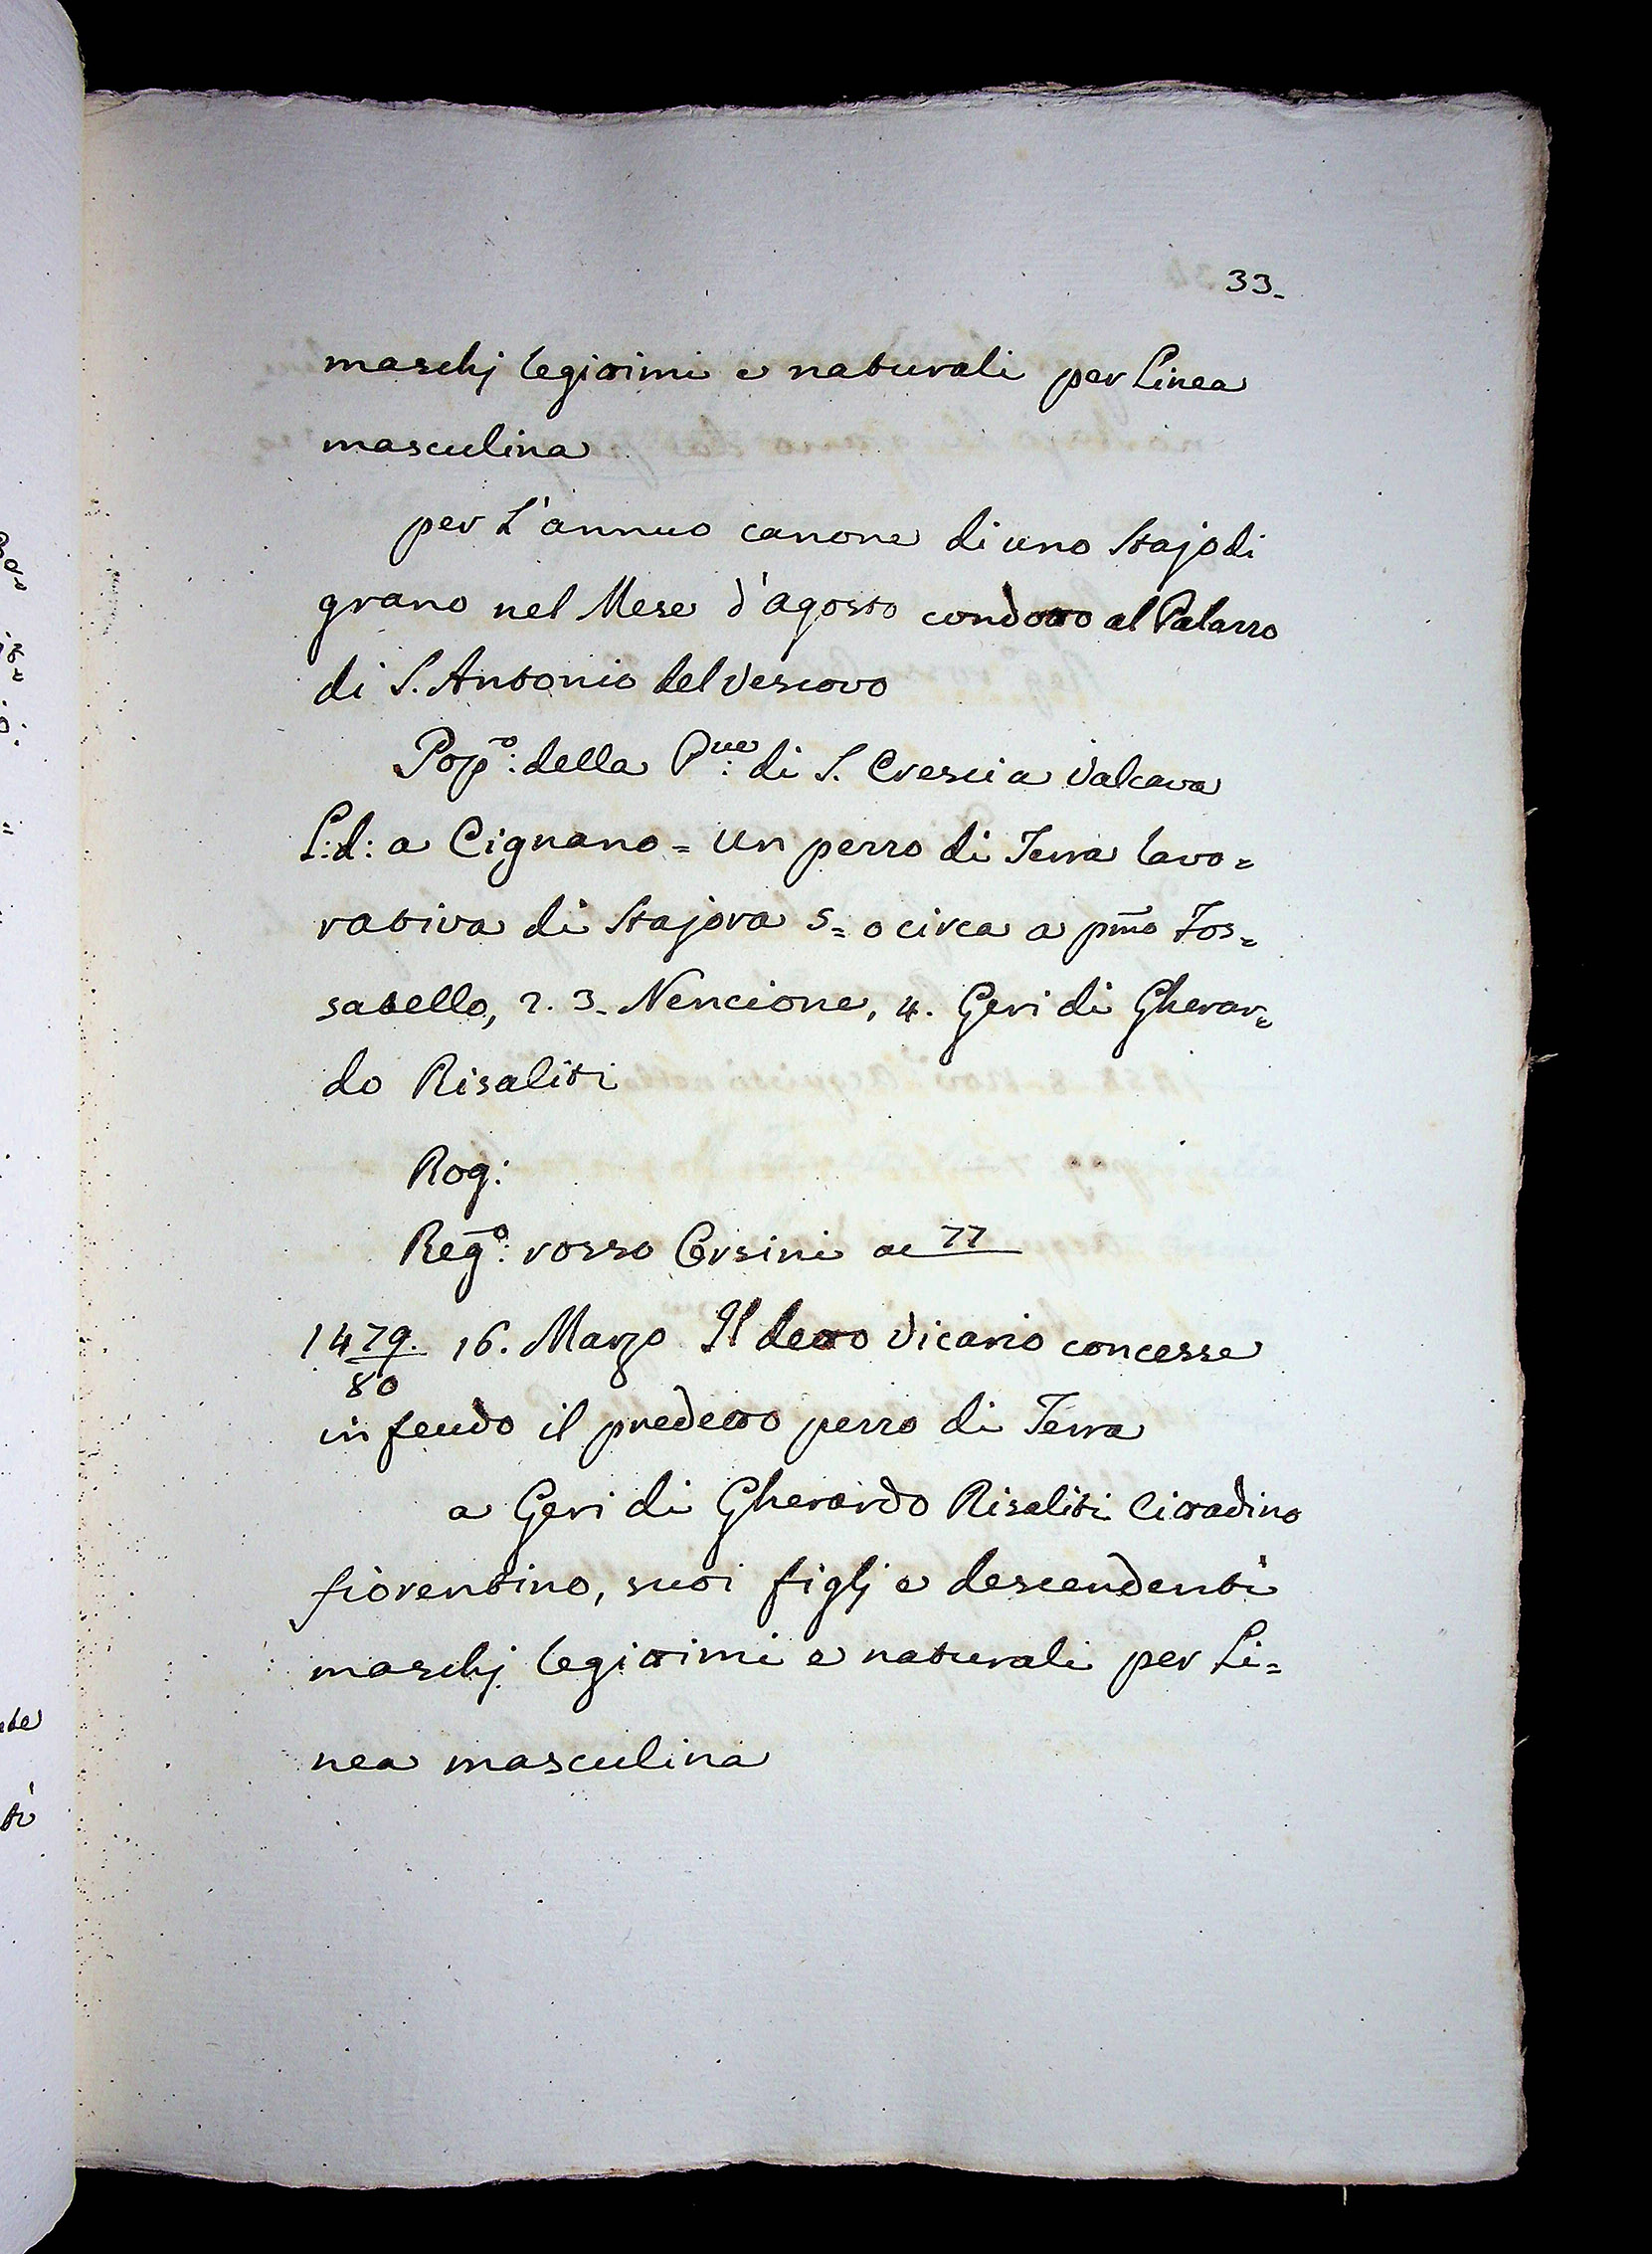 33.
maschj legittimi e naturali per Linea
masculina
per L'annuo canone di uno Stajo di
grano nel Mese d'agosto condotto al Palazzo
di S. Antonio del Vescovo
Pop:º della P:ve di S. Cresci a Valcava
L:d: a Cignano = un pezzo di Terra lavo=
rativa di Stajora 5= o circa a pmo Fos=
satello, 2. 3. Nencione, 4. Geri di Gherar=
do Risaliti
Rog:
Reg:º rosso Corsini a 77
1479. 16. Marzo Il detto Vicario concesse
80
in feudo il predetto pezzo di Terra
a Geri di Gherardo Risaliti Cittadino
fiorentino, suoi figlj e descendenti
maschj legittimi e naturali per Li=
nea masculina